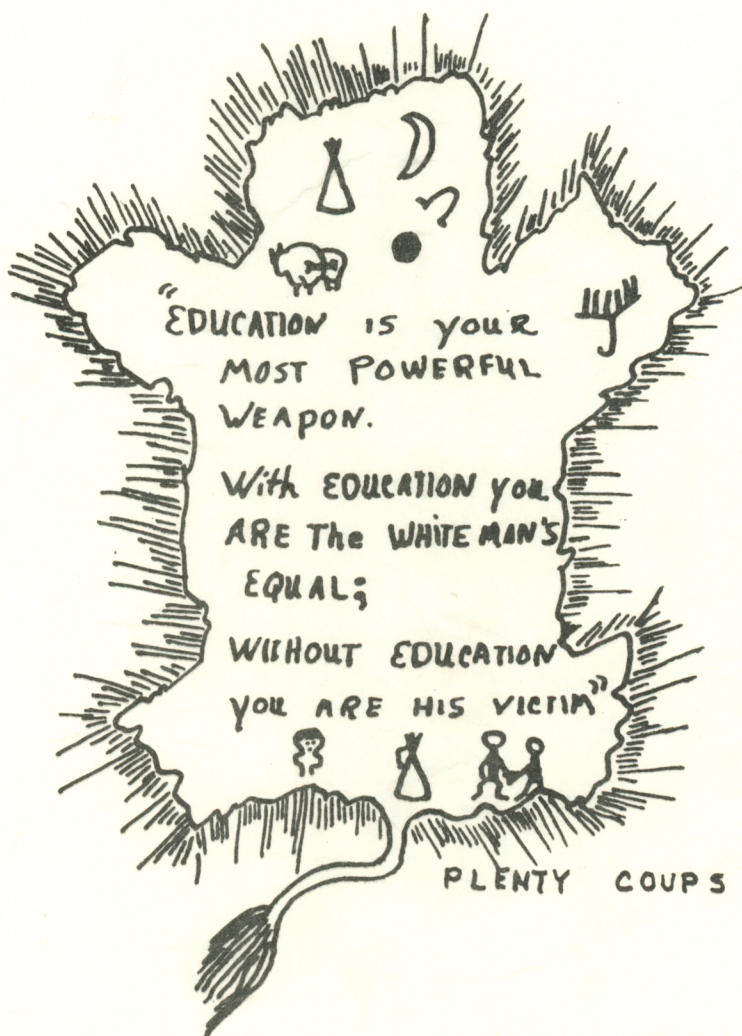 "EDUCATION is youR
MOST POWERFUL
WEAPON.
With EDUCATION you
ARE The WHiTE MAN'S
EQUAL;
WITHOUT EDUCATION
you ARE HIS VICTIM"
PLENTY COUPS